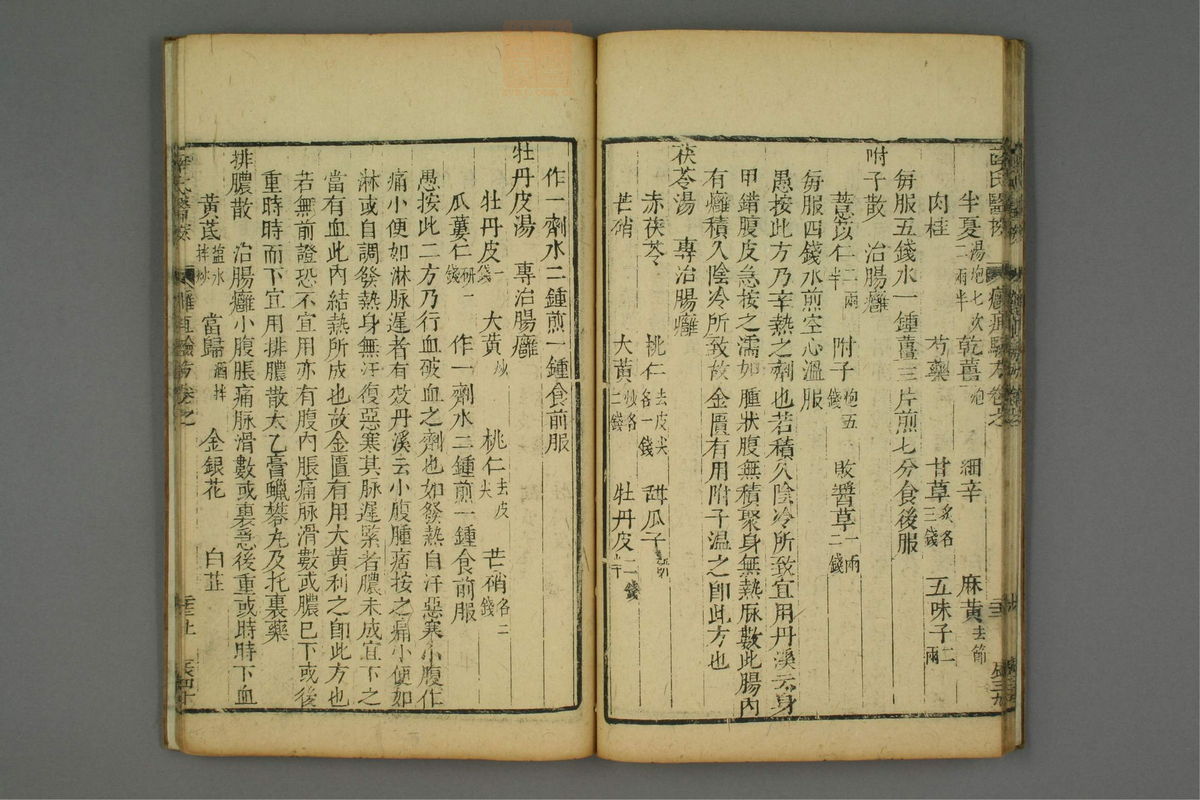 半夏湯炮七次二兩半 乾薑炮 細辛 麻黃去節
肉桂 芍藥 甘草炙各三錢 五味子二兩
每服五錢水一鍾薑三片煎七分食後服
附子散 治腸癰
薏苡仁二兩半 附子炮五錢 敗醬草一兩二錢
每服四錢水煎空心溫服
愚按此方乃辛熱之劑也若積久陰冷所致宜用丹溪云身
甲錯腹皮急按之濡如腫狀腹無積聚身無熱脉數此腸內
有癰積久陰冷所致故金匱有用附子溫之卽此方也
茯苓湯 專治腸癰
赤茯苓 桃仁去皮尖各一錢 甜瓜子
芒硝 大黃炒各二錢 牡丹皮二錢半
作一劑水二鍾煎一鍾食前服
牡丹皮湯 專治腸癰
牡丹皮一錢 大黃炒 桃仁去皮尖 芒硝各二錢
瓜蔞仁研一錢 作一劑水二鍾煎一鍾食前服
愚按此二方乃行血破血之劑也如發熱自汗惡寒小腹作
痛小便如淋脉遲者有效丹溪云小腹腫痞按之痛小便如
淋或自調發熱身無汗復惡寒其脉遲緊者膿未成宜下之
當有血此內結熱所成也故金匱有用大黃利之卽此方也
若無前證恐不宜用亦有腹內脹痛脉滑數或膿巳下或後
重時時而下宜用排膿散太乙膏蠟礬丸及托裏藥
排膿散 治腸癰小腹脹痛脉滑數或裏急後重或時時下血
黃茋鹽水拌炒 當歸酒拌 金銀花 白芷